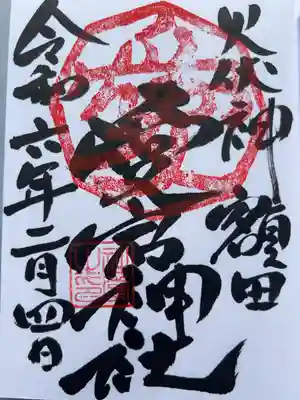 火伏神
額田
愛宕神社
令和六年二月四日